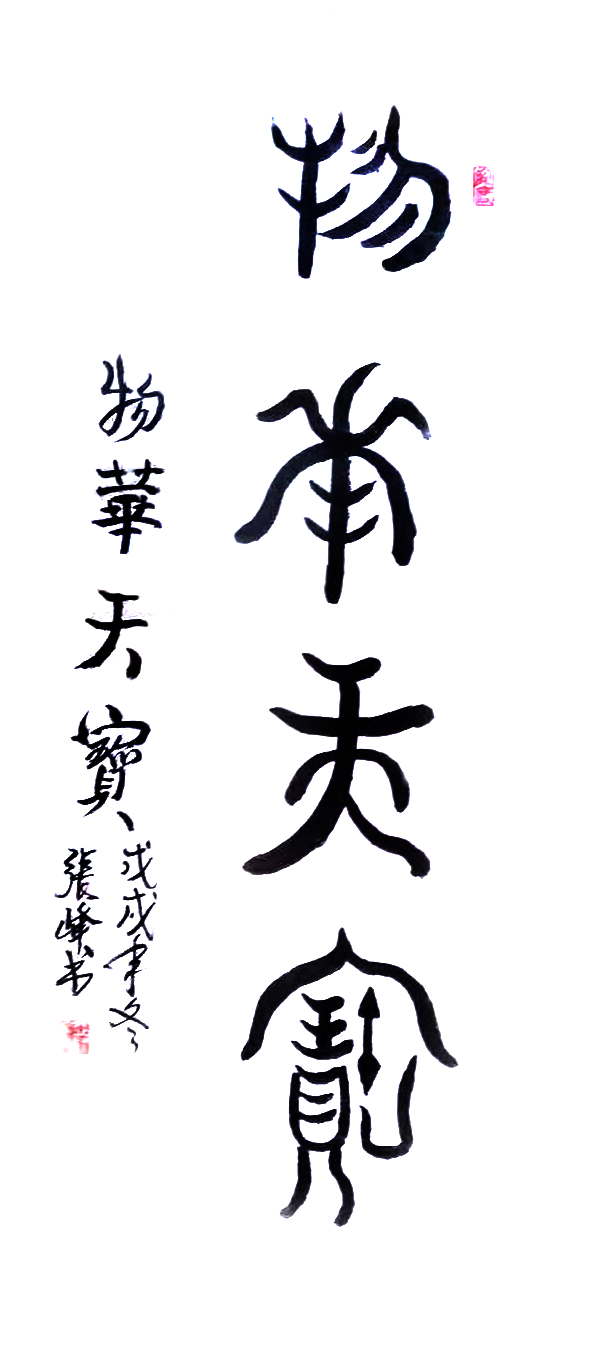 物華天寶
物華天寶
戊戌年冬
張峰书